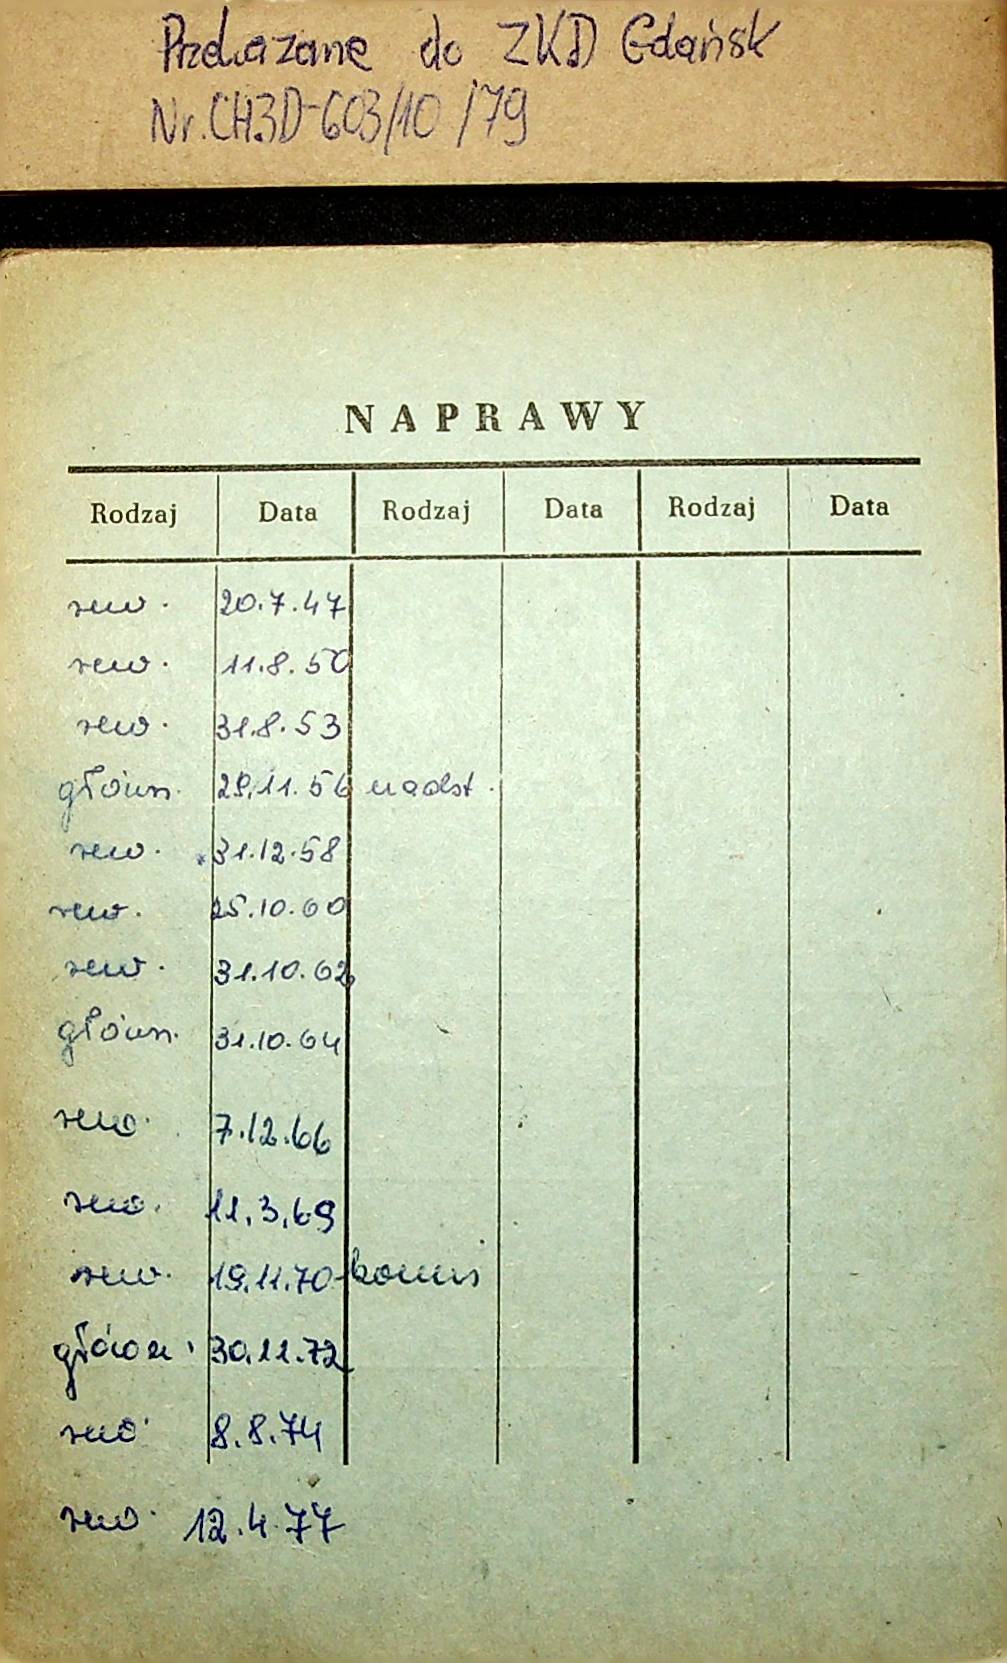 Przekazane do ZKD Gdańsk
Nr.CH3D-603/10/79
NAPRAWY
Rodzaj Data Rodzaj Data Rodzaj Data
rew. 20.7.47
rew. 11.8.50
rew. 31.8.53
główn. 29.11.56 nadst.
rew. 31.12.58
rew. 25.10.60
rew. 31.10.62
główn. 31.10.64
rew. 7.12.66
rew. 11.3.69
rew. 19.11.70-komis
główn. 30.11.72
rew. 8.8.74
rew. 12.4.77